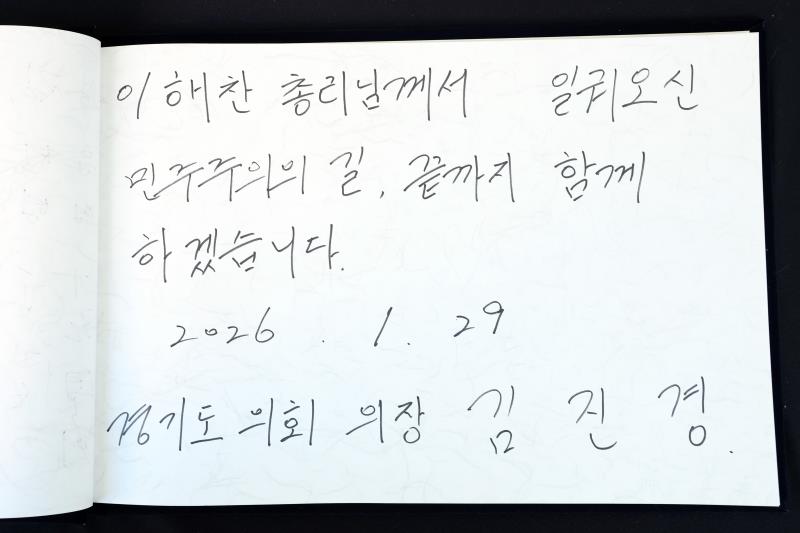 이해찬 총리님께서 일궈오신
민주주의의 길, 끝까지 함께
하겠습니다.
2026. 1. 29
경기도의회 의장 김진경.